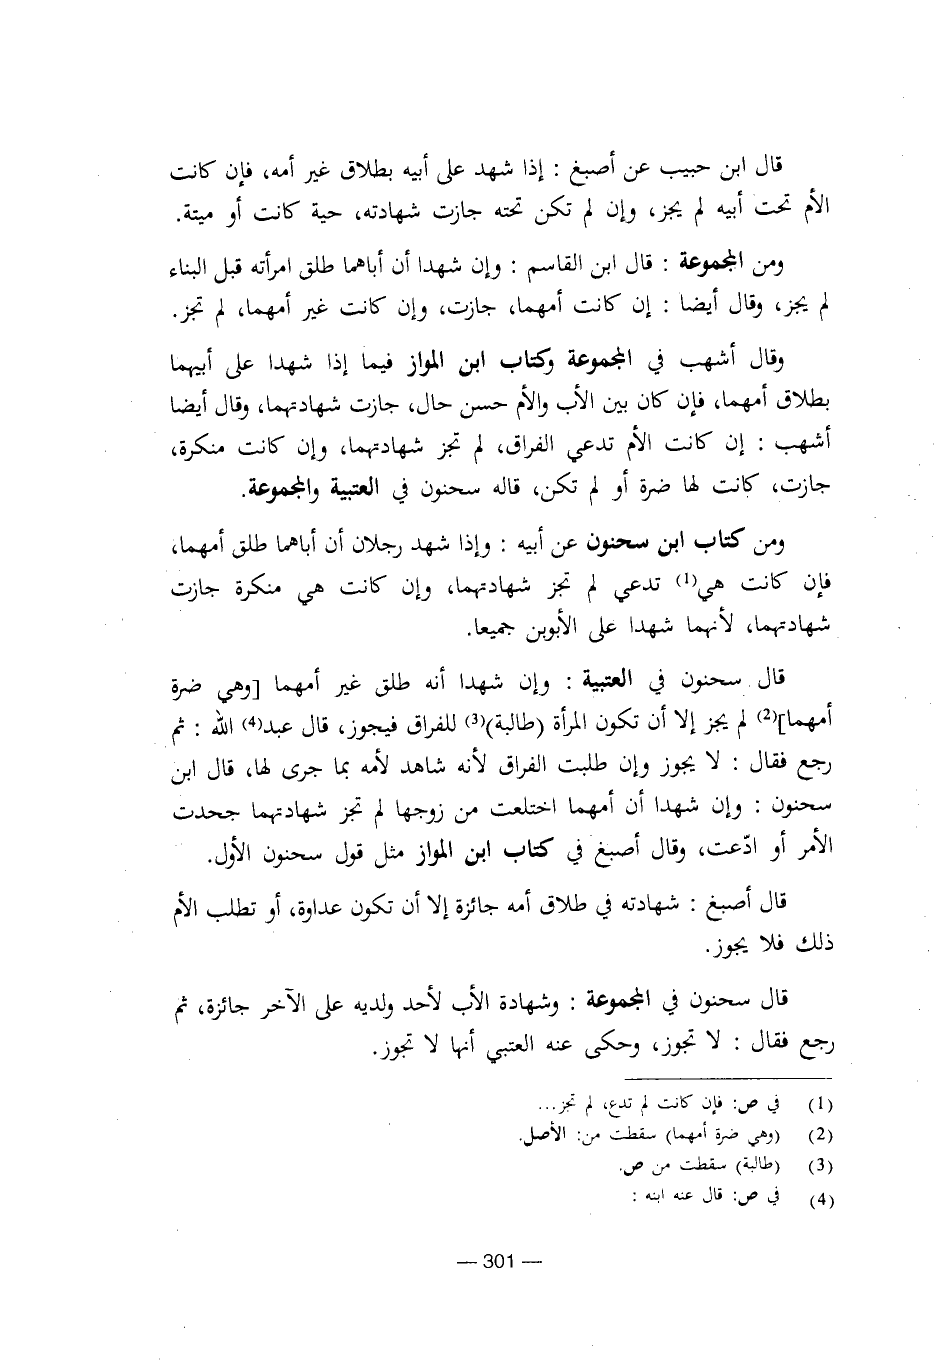 قال ابن حبيب عن أصبغ : إذا شهد على أبيه بطلاق غير أمه، فإن كانت
الأم تحت أبيه لم يجز، وإن لم تكن تحته جازت شهادته، حية كانت أو ميتة.
ومن المجموعة : قال ابن القاسم : وإن شهدا أن أباهما طلق امرأته قبل البناء
لم يجز، وقال أيضا : إن كانت أمهما، جازت، وإن كانت غير أمهما، لم تجز.
وقال أشهب في المجموعة وكتاب ابن المواز فيما إذا شهدا على أبيهما
بطلاق أمهما، فإن كان بين الأب والأم حسن حال، جازت شهادتهما، وقال أيضا
أشهب : إن كانت الأم تدعي الفراق، لم تجز شهادتهما، وإن كانت منكرة،
جازت، كانت لها ضرة أو لم تكن، قاله سحنون في العتبية والمجموعة.
ومن كتاب ابن سحنون عن أبيه : وإذا شهد رجلان أن أباهما طلق أمهما،
فإن كانت هي(1) تدعي لم تجز شهادتهما، وإن كانت هي منكرة جازت
شهادتهما، لأنهما شهدا على الأبوين جميعا.
قال سحنون في العتبية : وإن شهدا أنه طلق غير أمهما [وهي ضرة
أمهما](2) لم يجز إلا أن تكون المرأة (طالبة)(3) للفراق فيجوز، قال عبد(4) الله : ثم
رجع فقال : لا يجوز وإن طلبت الفراق لأنه شاهد لأمه بما جرى لها، قال ابن
سحنون : وإن شهدا أن أمهما اختلعت من زوجها لم تجز شهادتهما جحدت
الأمر أو ادّعت، وقال أصبغ في كتاب ابن المواز مثل قول سحنون الأول.
قال أصبغ : شهادته في طلاق أمه جائزة إلا أن تكون عداوة، أو تطلب الأم
ذلك فلا يجوز.
قال سحنون في المجموعة : وشهادة الأب لأحد ولديه على الآخر جائزة، ثم
رجع فقال : لا تجوز، وحكى عنه العتبي أنها لا تجوز.
(1) في ص: فإن كانت لم تدع، لم تجز...
(2) (وهي ضرة أمهما) سقطت من: الأصل.
(3) (طالبة) سقطت من ص.
(4) في ص: قال عنه ابنه :
— 301 —